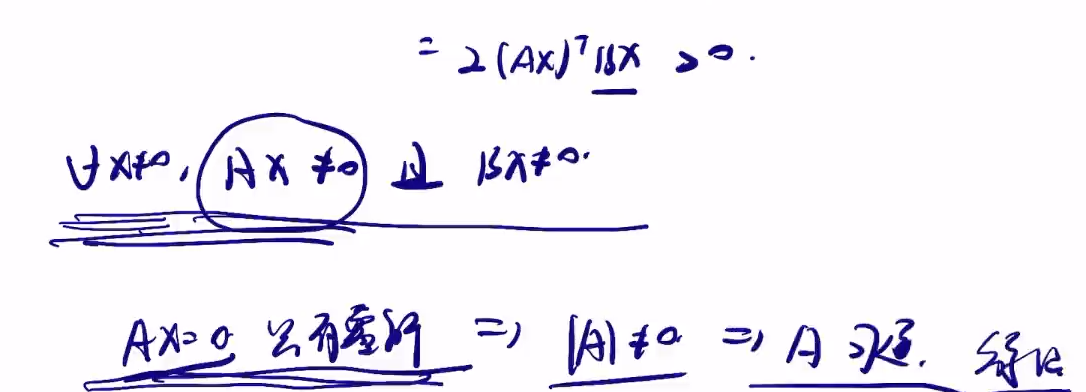 = 2(AX)ᵀBX > 0.
∀X≠0, AX≠0 且 BX≠0.
AX=0 只有零解 ⇒ |A|≠0 ⇒ A 可逆. 得证